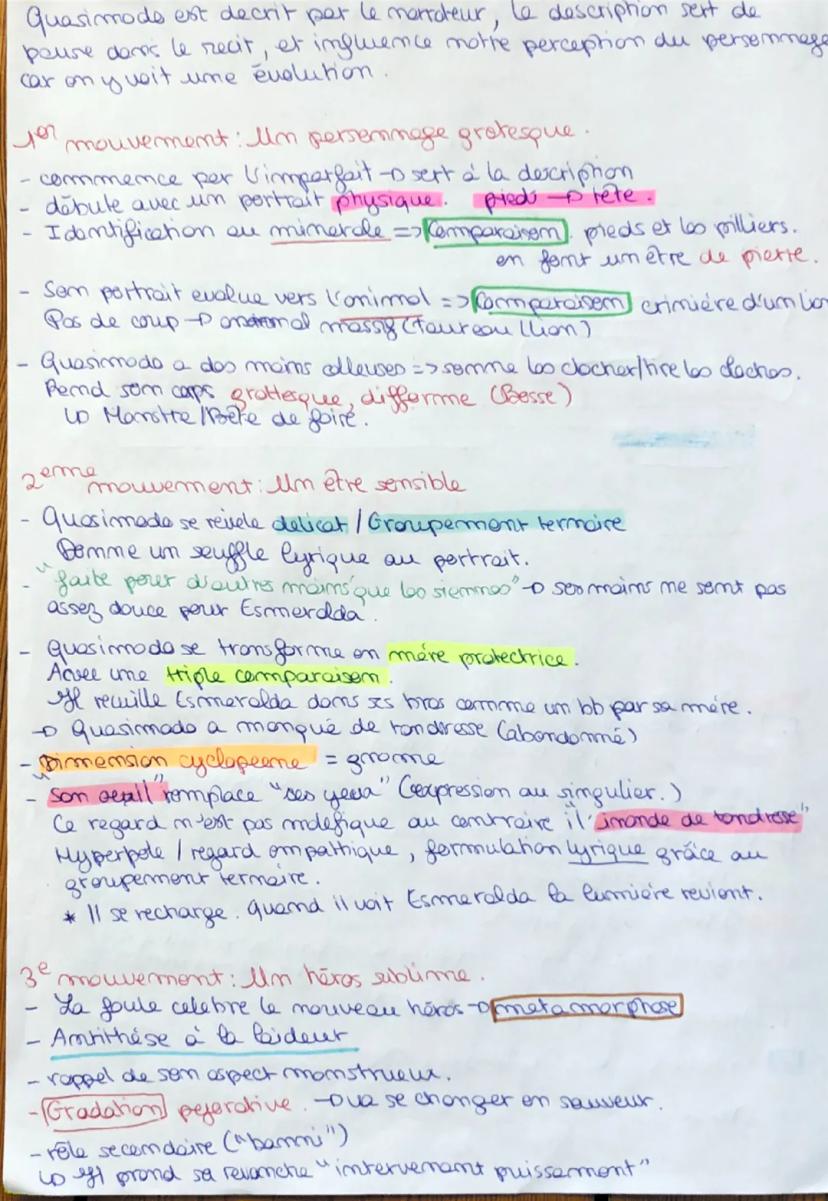 Quasimodo est decrit par le narrateur, la description sert de
pause dans le recit, et influence notre perception du personnage
car on y voit une évolution.
1er mouvement : Un personnage grotesque.
- commence par l'imparfait → sert à la description
- débute avec un portrait physique. pieds → tête.
- Identification au minerale => Comparaison pieds et les pilliers.
en font un être de pierre.
- Son portrait evolue vers l'animal => Comparaison crinière d'un lion
Pas de coup → animal massif (taureau / lion)
- Quasimodo a des mains calleuses => sonne les clocher/tire les cloches.
Rend son corps grottesque, difforme (Bosse)
↳ Monstre / Bête de foire.
2eme mouvement : Un être sensible
- Quasimodo se révele delicat / Groupement ternaire
Donne un souffle lyrique au portrait.
- "faite pour d'autres mains que les siennes" → ses mains ne sont pas
assez douce pour Esmeralda.
- Quasimodo se transforme en mère protectrice.
Avec une triple comparaison.
Il recuille Esmeralda dans ses bras comme un bb par sa mère.
→ Quasimodo a manqué de tendresse (abandonné)
- Dimension cyclopeene = gnome
- "Son oeil" remplace "ses yeux" (expression au singulier.)
Ce regard n'est pas maléfique au contraire il "inonde de tendresse"
Hyperbole / regard empathique, formulation lyrique grâce au
groupement ternaire.
* Il se recharge. Quand il voit Esmeralda la lumière revient.
3e mouvement : Un héros sublime.
- La foule celebre le nouveau héros → metamorphose
- Antithèse à la laideur
- rappel de son aspect monstrueux.
- Gradation pejorative. → va se changer en sauveur.
- rôle secondaire ("banni")
↳ Il prend sa revanche "intervenant puissament"